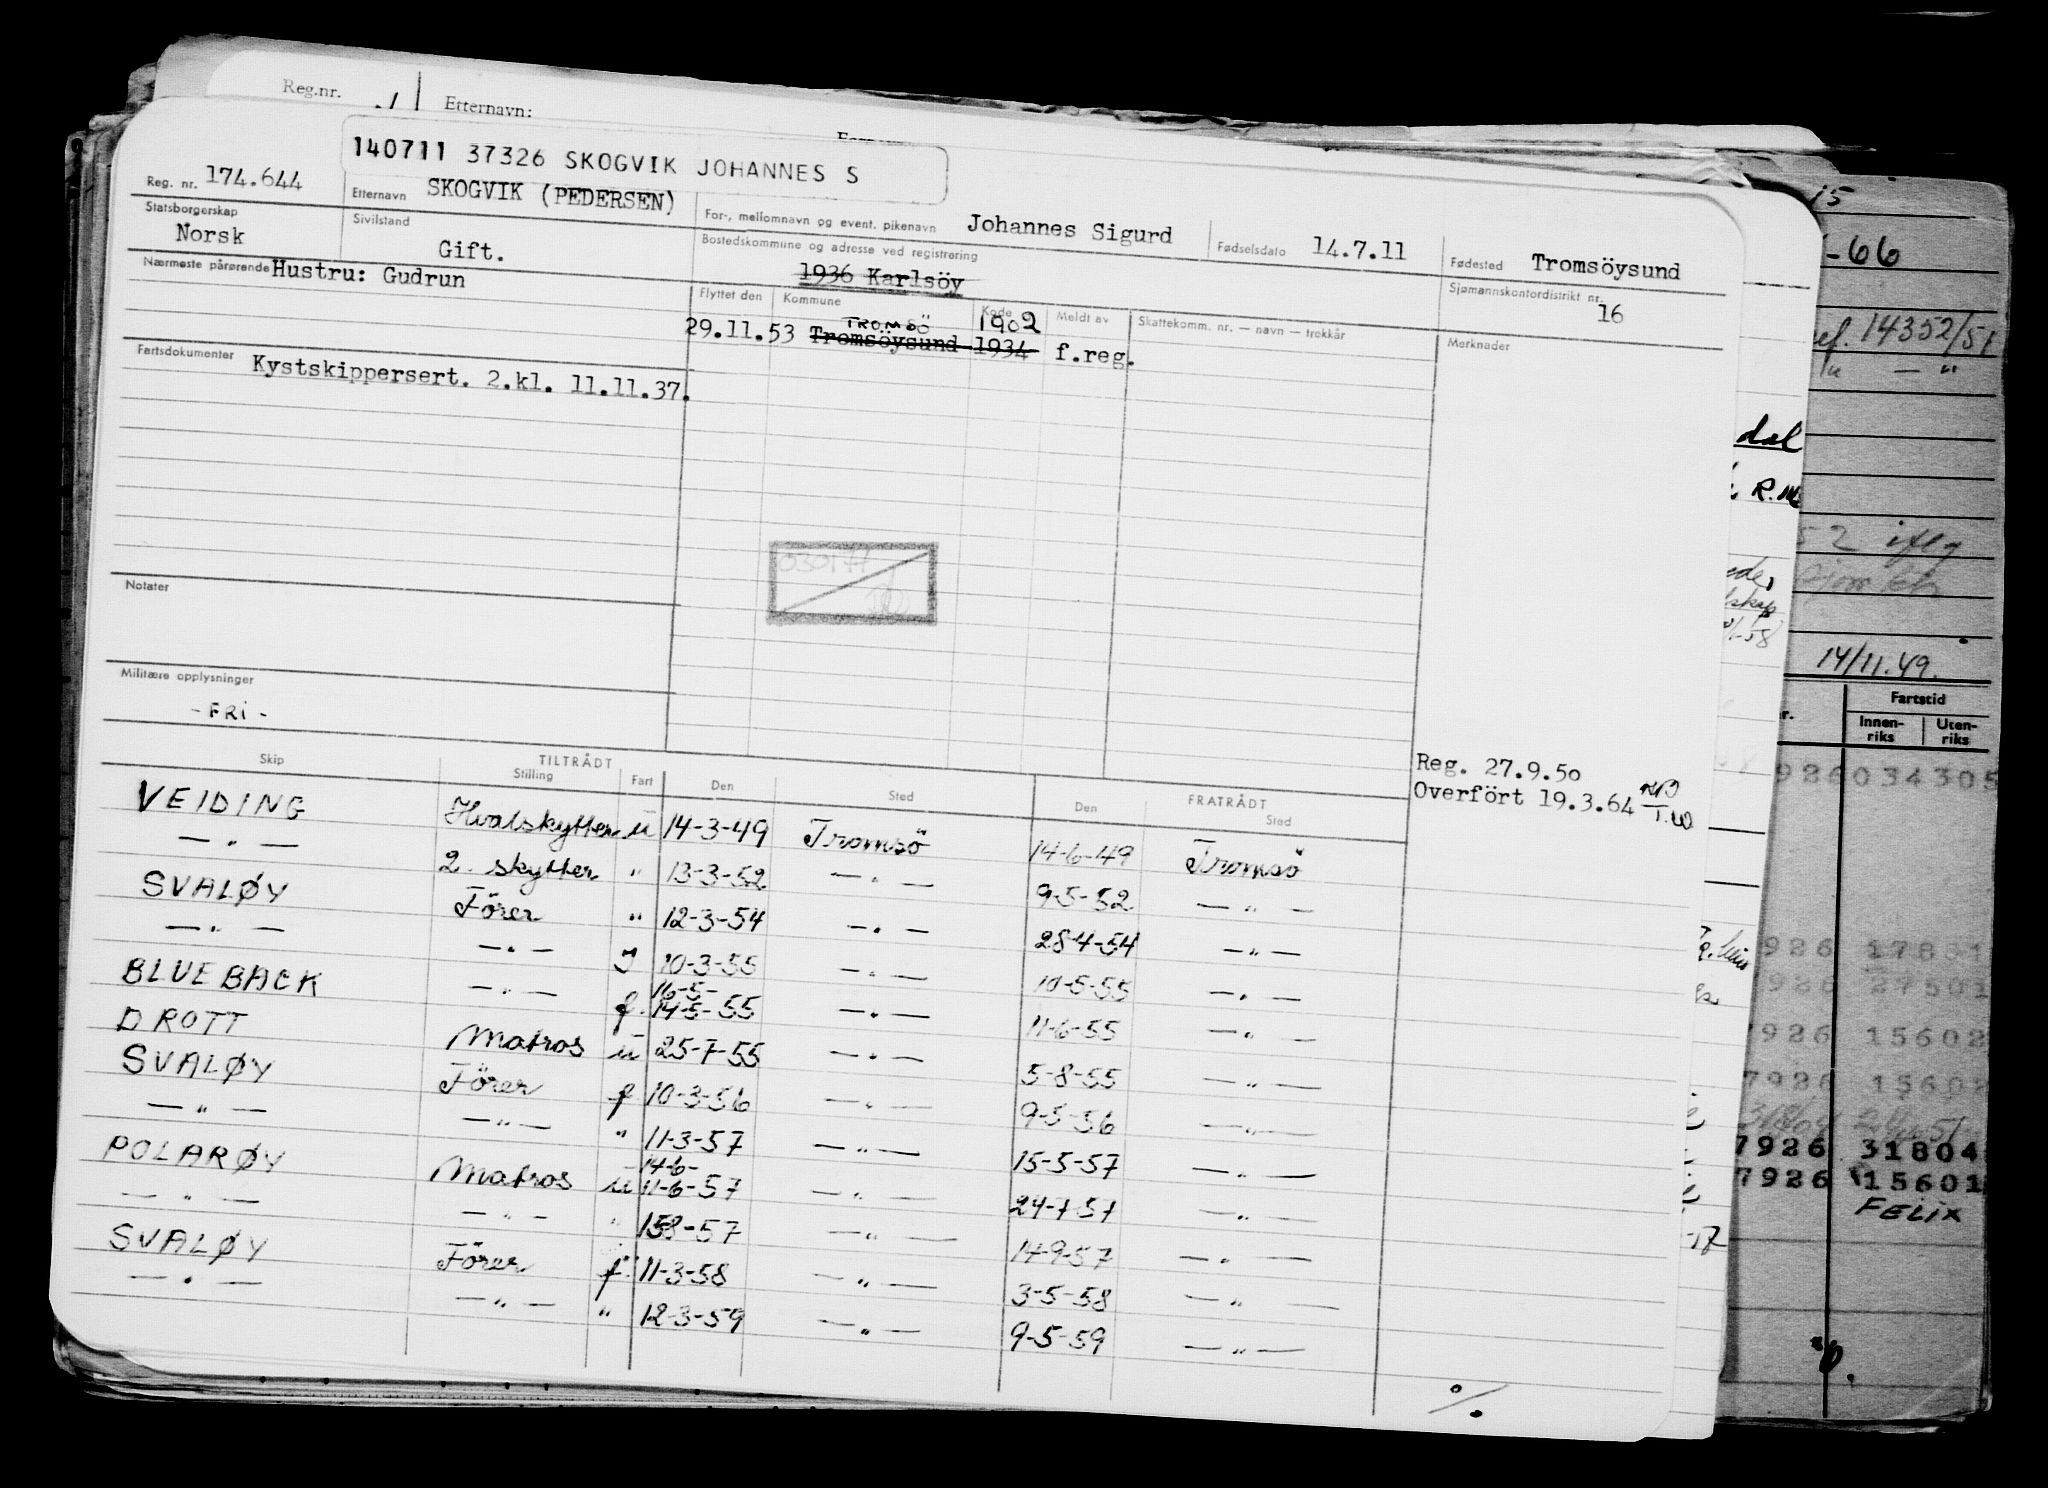 Reg.nr.
Etternavn:
140711 37326 SKOGVIK JOHANNES S
Reg. nr. 174.644
Etternavn SKOGVIK (PEDERSEN)
For-, mellomnavn og event. pikenavn Johannes Sigurd
Fødselsdato 14.7.11
Fødested Tromsöysund
Statsborgerskap Norsk
Sivilstand Gift.
Bostedskommune og adresse ved registrering
1936 Karlsöy
Sjømannskontordistrikt nr. 16
Nærmeste pårørende Hustru: Gudrun
Flyttet den Kommune Kode Meldt av Skattekomm. nr. — navn — trekkår Merknader
TROMSÖ 1902
29.11.53 Tromsöysund 1934 f.reg.
Fartsdokumenter
Kystskippersert. 2.kl. 11.11.37.
Notater
Militære opplysninger
- FRI -
Reg. 27.9.50
Overfört 19.3.64
TILTRÅDT FRATRÅDT
Skip Stilling Fart Den Sted Den Sted
VEIDING Hvalskytter u 14-3-49 Tromsö 14-6-49 Tromsö
— " — 2. skytter " 13-3-52 — " — 9-5-52 — " —
SVALØY Förer " 12-3-54 — " — 28-4-54 — " —
— " — — " — 10-3-55 — " — 10-5-55 — " —
16-5-
BLUEBACK — " — f. 14-5-55 — " — 11-6-55 — " —
DROTT Matros u 25-7-55 — " — 5-8-55 — " —
SVALØY Förer f 10-3-56 — " — 9-5-56 — " —
— " — — " — " 11-3-57 — " — 15-5-57 — " —
14-6-
POLARØY Matros u 11-6-57 — " — 24-7-57 — " —
— " — — " — " 158-57 — " — 14-9-57 — " —
SVALØY Förer f. 11-3-58 — " — 3-5-58 — " —
— " — — " — " 12-3-59 — " — 9-5-59 — " —
%
15
-66
14352/51
dal
14/11.49.
Fartstid
Innen-
riks
Uten-
riks
926 034305
926
7926 15602
7926 15602
7926 31804
7926 15601
FELIX